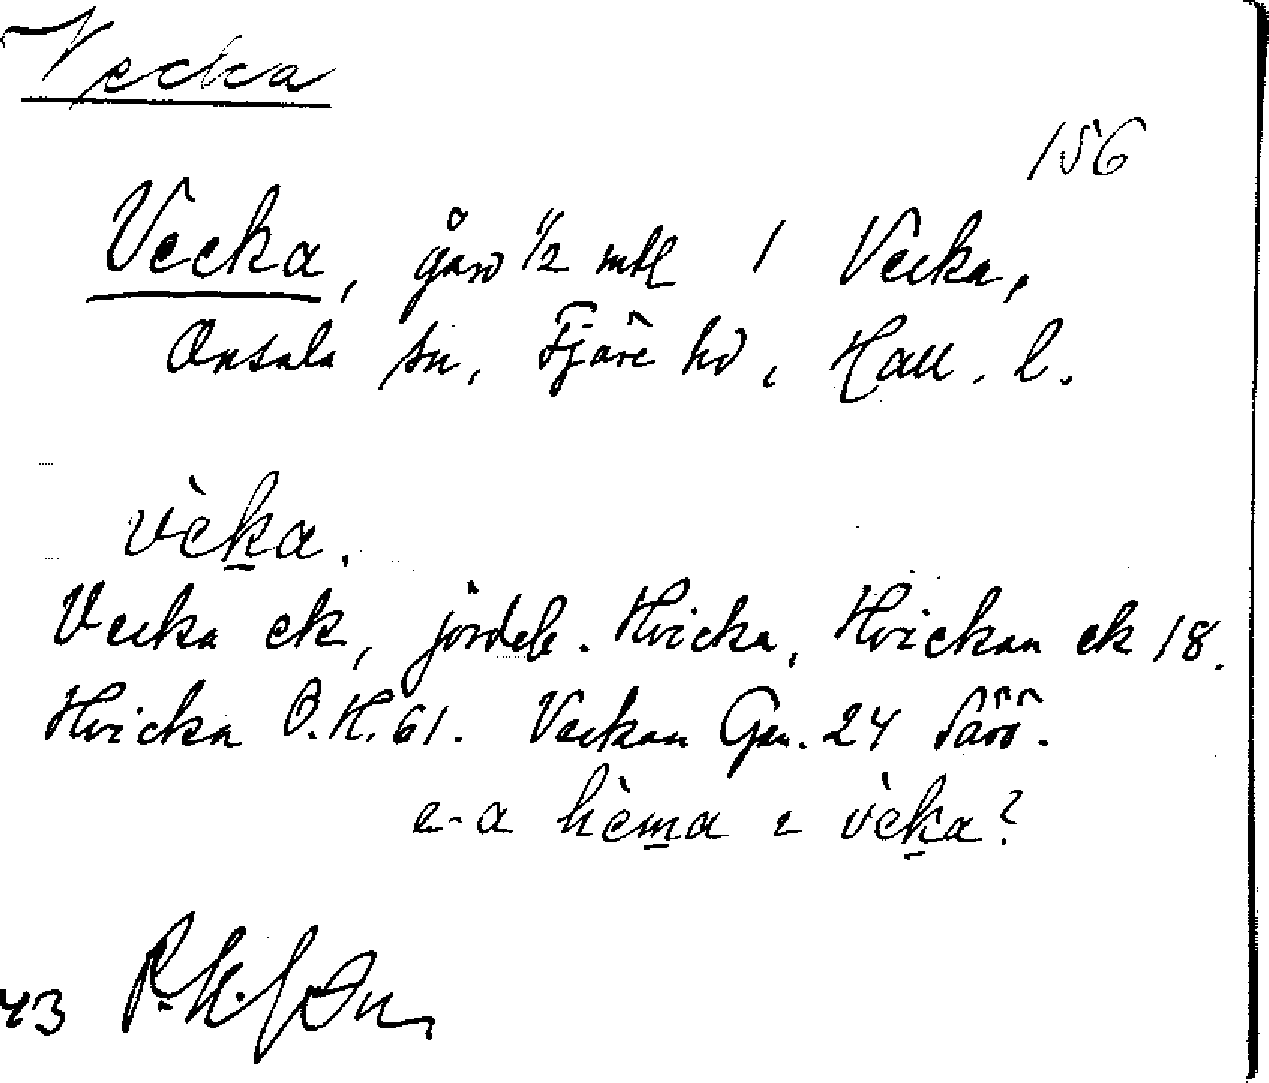 Vecka
156
Vecka, gård 1/2 mtl 1 Vecka,
Onsala sn, Fjäre hd, Hall. l.
vèka.
Vecka ek, jordeb. Hvicka, Hvickan ek 18.
Hvicka O.H. 61. Veckan Gen. 24 Särö.
e-a hèma e vèka?
43